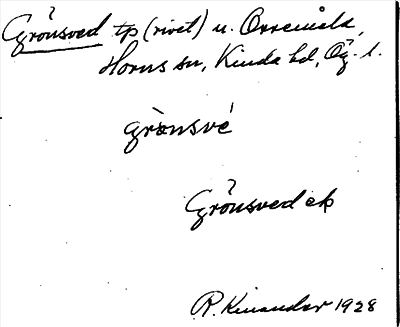 Grönsved tp (rivet) u. Orremåla,
Horns sn, Kinda hd, Ög. l.
grònsvé
Grönsved ek
R. Kinander 1928